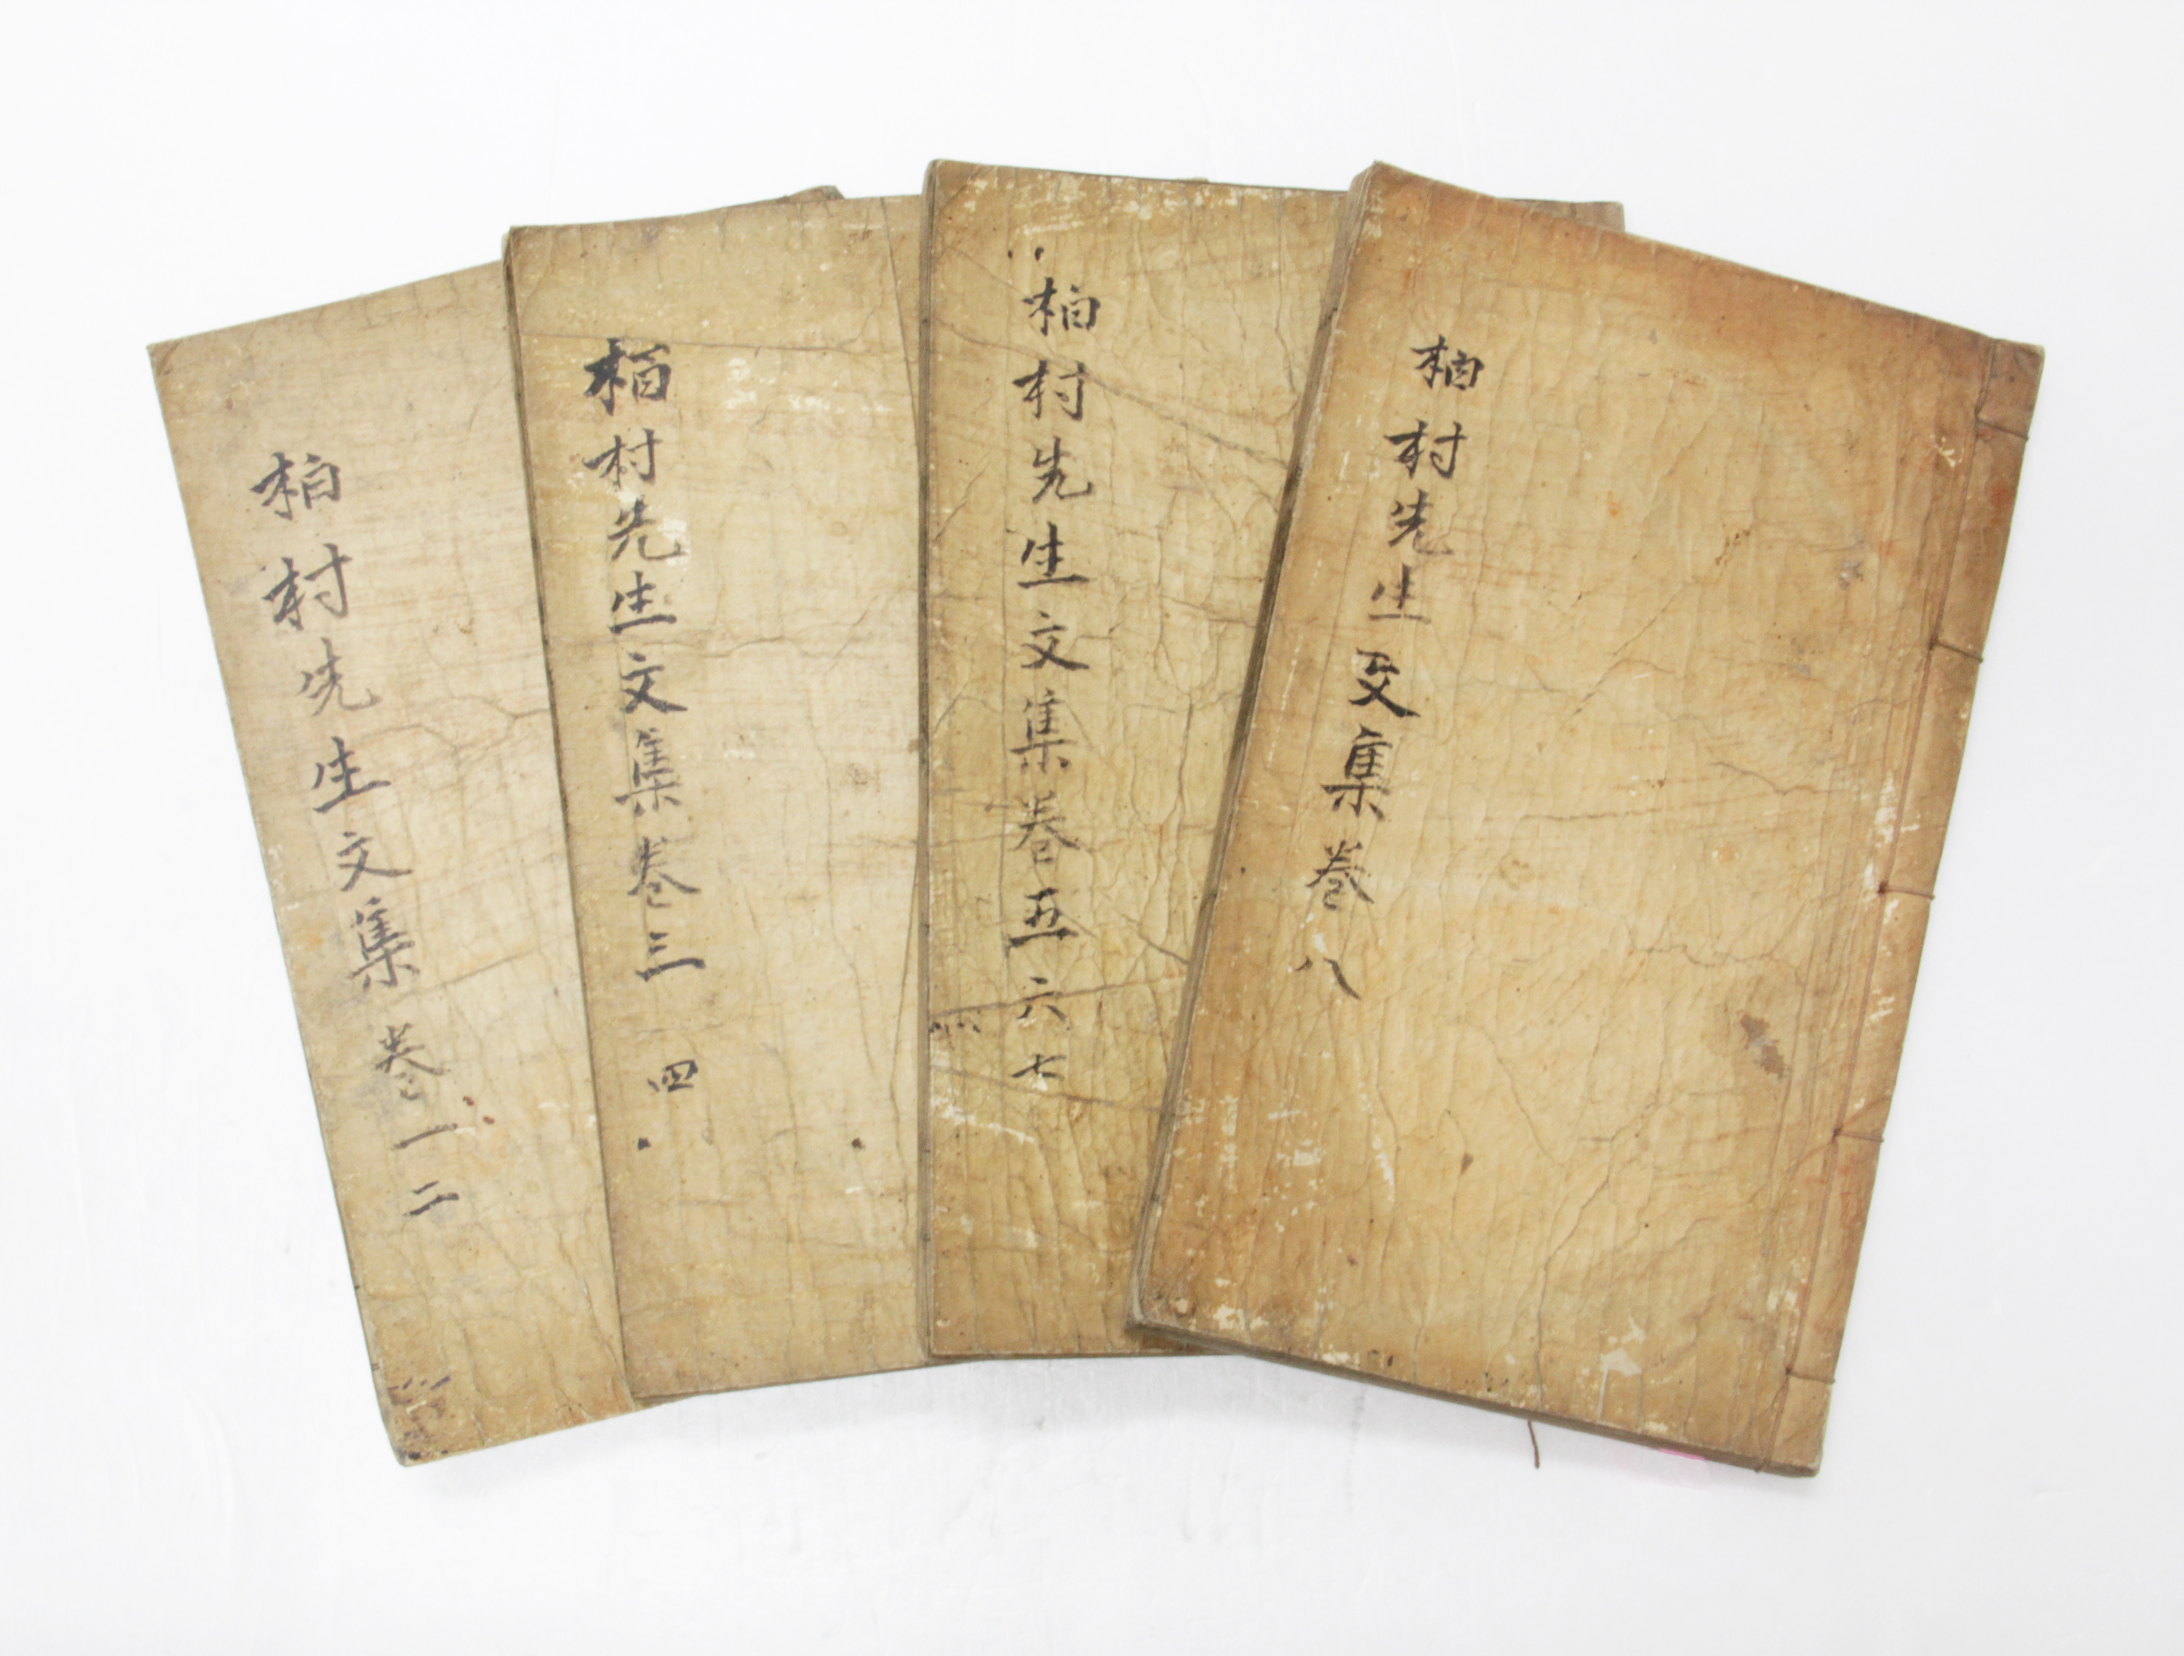 柏村先生文集卷一二
柏村先生文集卷三四
柏村先生文集卷五六七
柏村先生文集卷八